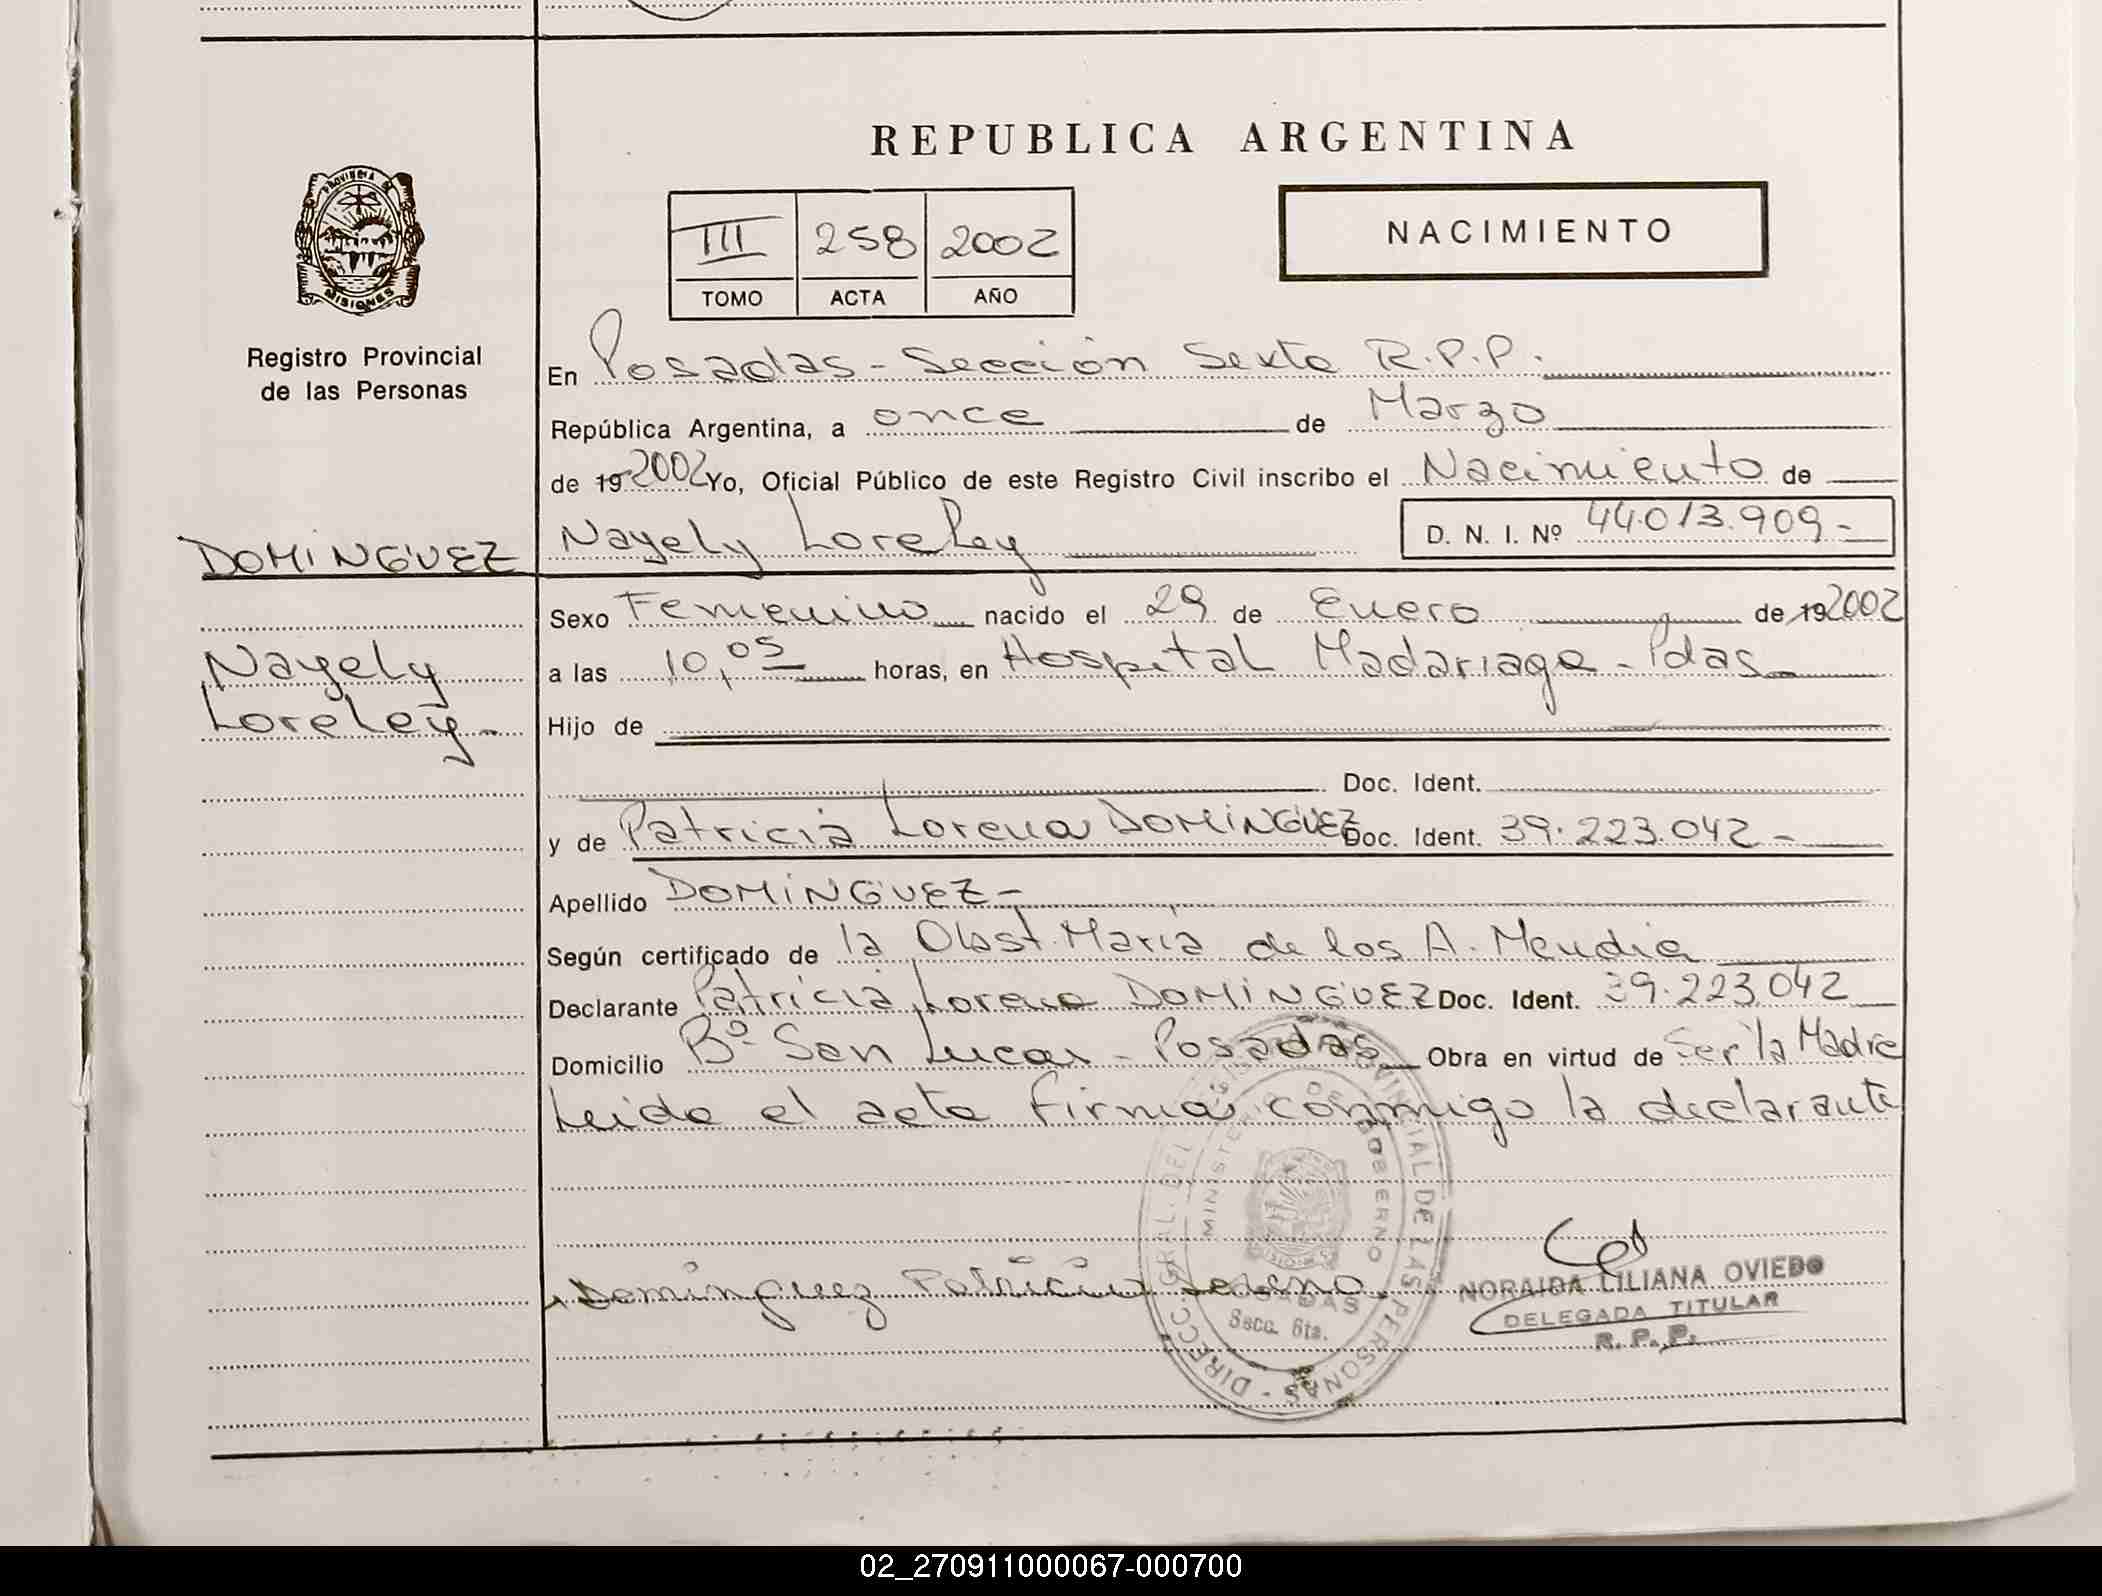 REPUBLICA ARGENTINA
PROVINCIA DE
MISIONES
Registro Provincial
de las Personas
III 258 2002
TOMO ACTA AÑO
NACIMIENTO
En Posadas - Sección Sexta R.P.P.
República Argentina, a once de Marzo
de 19 2002 Yo, Oficial Público de este Registro Civil inscribo el Nacimiento de
DOMINGUEZ
Nayely Loreley D. N. I. Nº 44.013.909 -
Sexo Femenino nacido el 29 de Enero de 19 2002
Nayely
Loreley -
a las 10,05 horas, en Hospital Madariaga - Pdas
Hijo de
Doc. Ident.
y de Patricia Lorena DOMINGUEZ Doc. Ident. 39.223.042 -
Apellido DOMINGUEZ -
Según certificado de la Obst. María de los A. Mendia
Declarante Patricia Lorena DOMINGUEZ Doc. Ident. 39.223.042
Domicilio Bº San Lucas - Posadas Obra en virtud de Ser la Madre
Leida el acta firma conmigo la declarante
DIRECC. GRAL. DEL PROVINCIAL DE LAS PERSONAS
MINISTERIO DE GOBIERNO
POSADAS
Secc. 6ta.
Dominguez Patricia Lorena
NORAIDA LILIANA OVIEDO
DELEGADA TITULAR
R. P. P.
02_270911000067-000700